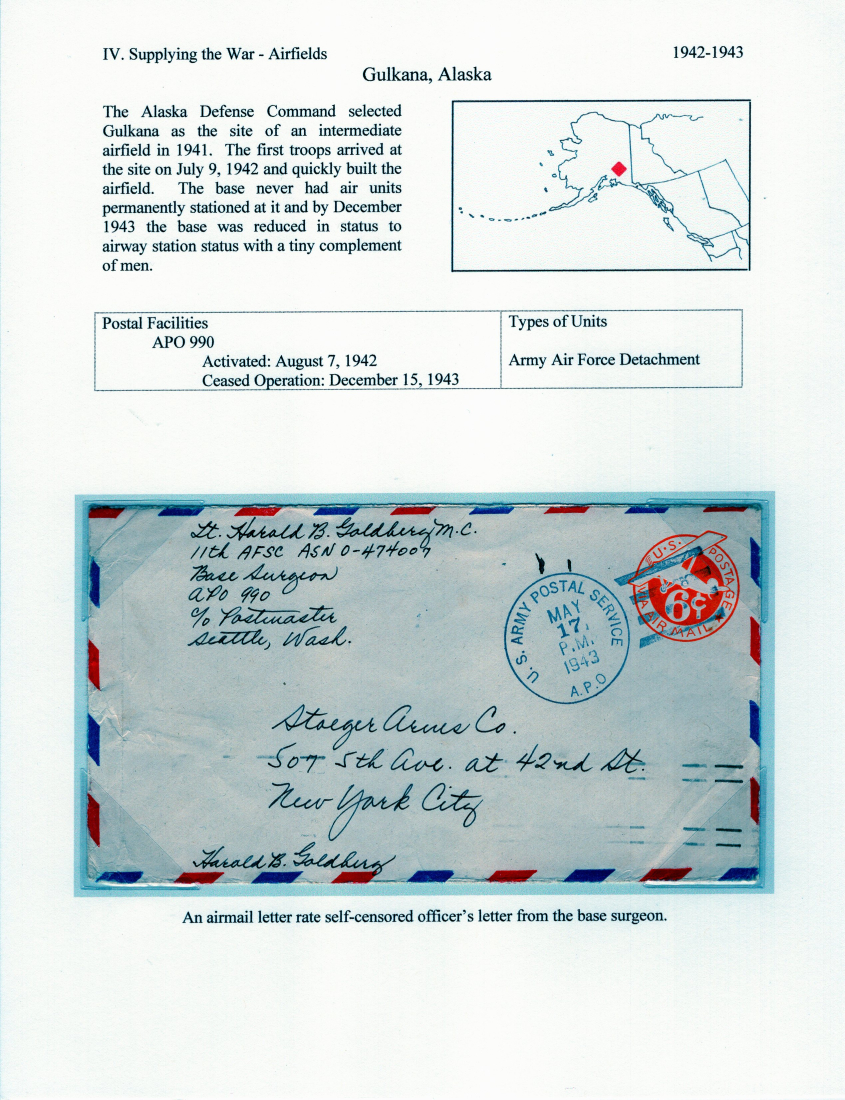 IV. Supplying the War - Airfields
1942-1943
Gulkana, Alaska
The Alaska Defense Command selected
Gulkana as the site of an intermediate
airfield in 1941. The first troops arrived at
the site on July 9, 1942 and quickly built the
airfield. The base never had air units
permanently stationed at it and by December
1943 the base was reduced in status to
airway station status with a tiny complement
of men.
Postal Facilities
APO 990
Activated: August 7, 1942
Ceased Operation: December 15, 1943
Types of Units
Army Air Force Detachment
Lt. Harold B. Goldberg M.C.
11th AFSC ASN O-474007
Base Surgeon
APO 990
c/o Postmaster
Seattle, Wash.
U.S. ARMY POSTAL SERVICE
MAY
17
P.M.
1943
A.P.O
U.S. POSTAGE
6¢
VIA AIR MAIL
Stoeger Arms Co.
507 5th Ave. at 42nd St.
New York City
Harold B. Goldberg
An airmail letter rate self-censored officer's letter from the base surgeon.